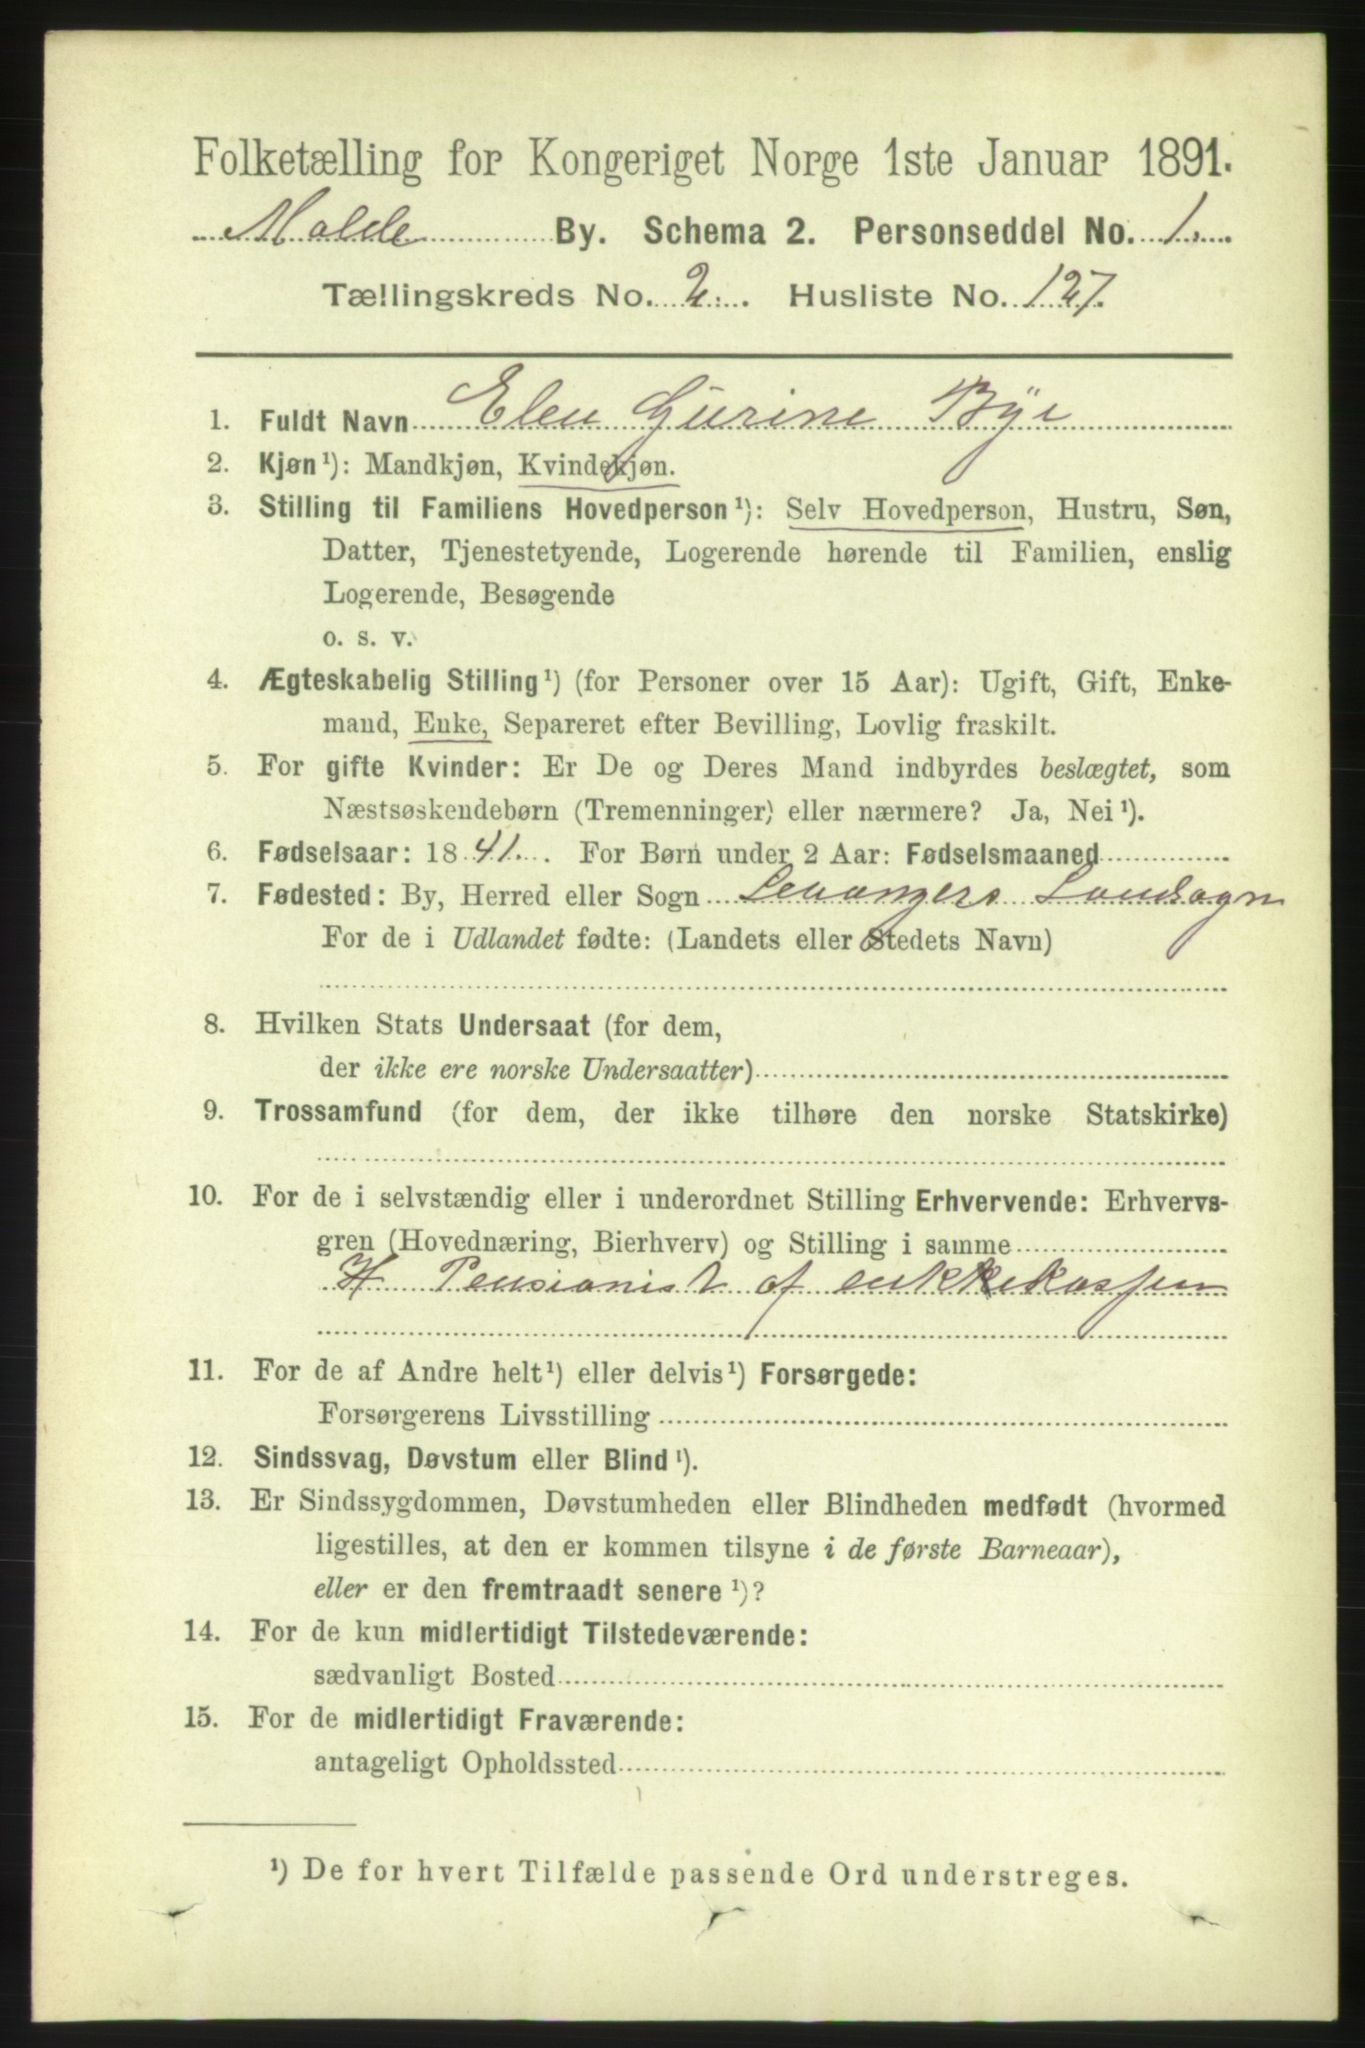 Folketælling for Kongeriget Norge 1ste Januar 1891.
Molde By. Schema 2. Personseddel No. 1.
Tællingskreds No. 2. Husliste No. 127.
1. Fuldt Navn Elen Gurine Bye
2. Kjøn¹): Mandkjøn, Kvindekjøn.
3. Stilling til Familiens Hovedperson¹): Selv Hovedperson, Hustru, Søn,
Datter, Tjenestetyende, Logerende hørende til Familien, enslig
Logerende, Besøgende
o. s. v.
4. Ægteskabelig Stilling¹) (for Personer over 15 Aar): Ugift, Gift, Enke-
mand, Enke, Separeret efter Bevilling, Lovlig fraskilt.
5. For gifte Kvinder: Er De og Deres Mand indbyrdes beslægtet, som
Næstsøskendebørn (Tremenninger) eller nærmere? Ja, Nei¹).
6. Fødselsaar: 1841. For Børn under 2 Aar: Fødselsmaaned
7. Fødested: By, Herred eller Sogn Levangers Landsogn
For de i Udlandet fødte: (Landets eller Stedets Navn)
8. Hvilken Stats Undersaat (for dem,
der ikke ere norske Undersaatter)
9. Trossamfund (for dem, der ikke tilhøre den norske Statskirke)
10. For de i selvstændig eller i underordnet Stilling Erhvervende: Erhvervs-
gren (Hovednæring, Bierhverv) og Stilling i samme
H Pensionist af enkekassen
11. For de af Andre helt¹) eller delvis¹) Forsørgede:
Forsørgerens Livsstilling
12. Sindssvag, Døvstum eller Blind¹).
13. Er Sindssygdommen, Døvstumheden eller Blindheden medfødt (hvormed
ligestilles, at den er kommen tilsyne i de første Barneaar),
eller er den fremtraadt senere¹)?
14. For de kun midlertidigt Tilstedeværende:
sædvanligt Bosted
15. For de midlertidigt Fraværende:
antageligt Opholdssted
¹) De for hvert Tilfælde passende Ord understreges.